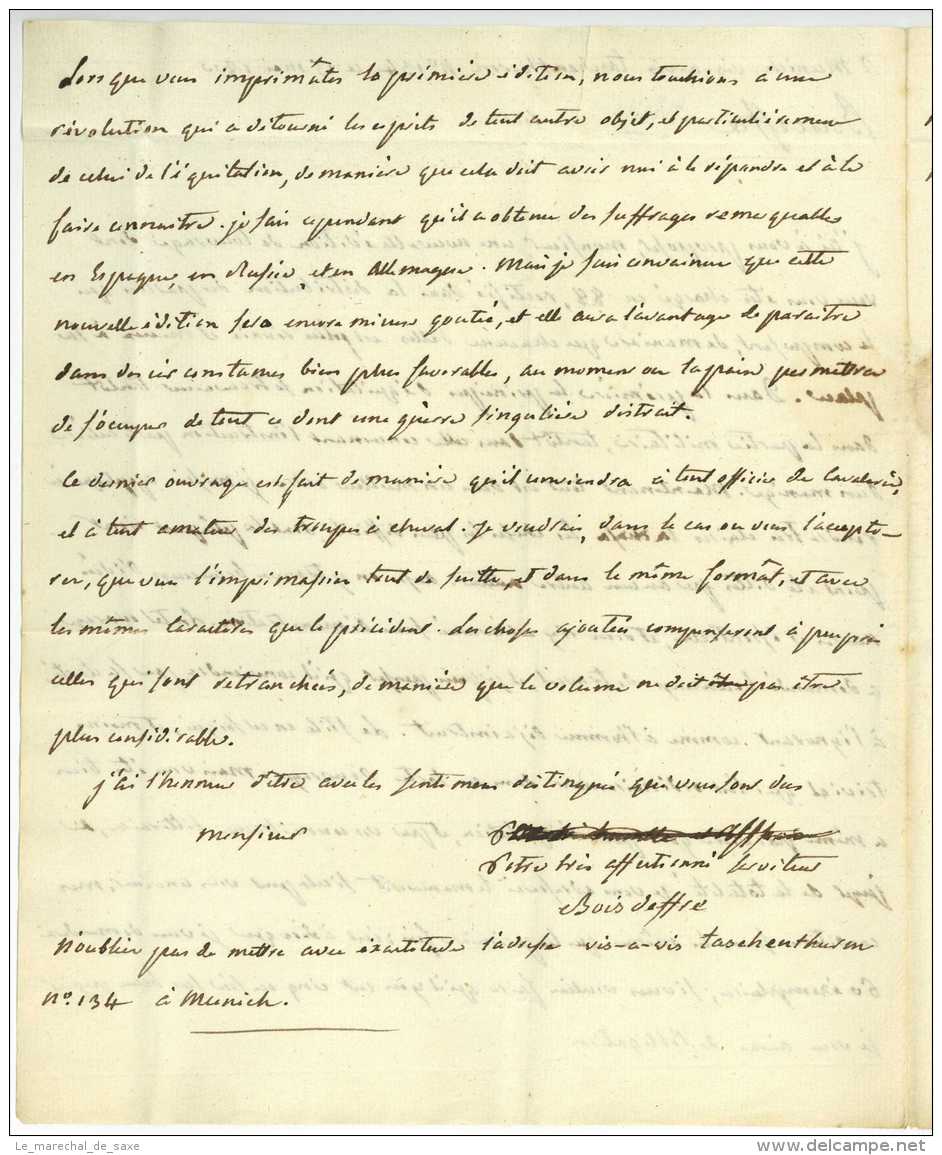 Lorsque vous imprimâtes la premiere édition, nous touchions à une
révolution qui a détourné les esprits de tout autre objet, et particulierement
de celui de l'équitation, de maniere que cela doit avoir nui à le répandre et à le
faire connaitre. je sais cependant qu'il a obtenu des suffrages remarquables
en Espagne, en Russie, et en Allemagne. Mais je suis convaincu que cette
nouvelle édition sera encore mieux goutée, et elle aura l'avantage de paraitre
dans des circonstances bien plus favorables, au moment ou la paix permettra
de s'occuper de tout ce dont une guerre singuliere distrait.
Ce dernier ouvrage est fait de maniere qu'il conviendra à tout officier de Cavalerie,
et à tout amateur des troupes à cheval. Je voudrais, dans le cas ou vous l'accepte-
rez, que vous l'imprimassiez tout de suitte, et dans le même formât, et avec
les mêmes caractères que le précédent. Les choses ajoutées compenseront à peu près
celles qui sont retranchées, de maniere que le volume ne doit pas être
plus considérable.
j'ai l'honneur d'être avec les sentimens distingués qui vous sont dus
Monsieur
Votre très affectionné serviteur
Boisdeffre
N'oubliez pas de mettre avec exactitude l'adresse vis-a-vis taschenthurm
No. 134 à Munich.
Le_marechal_de_saxe
delcampe.net